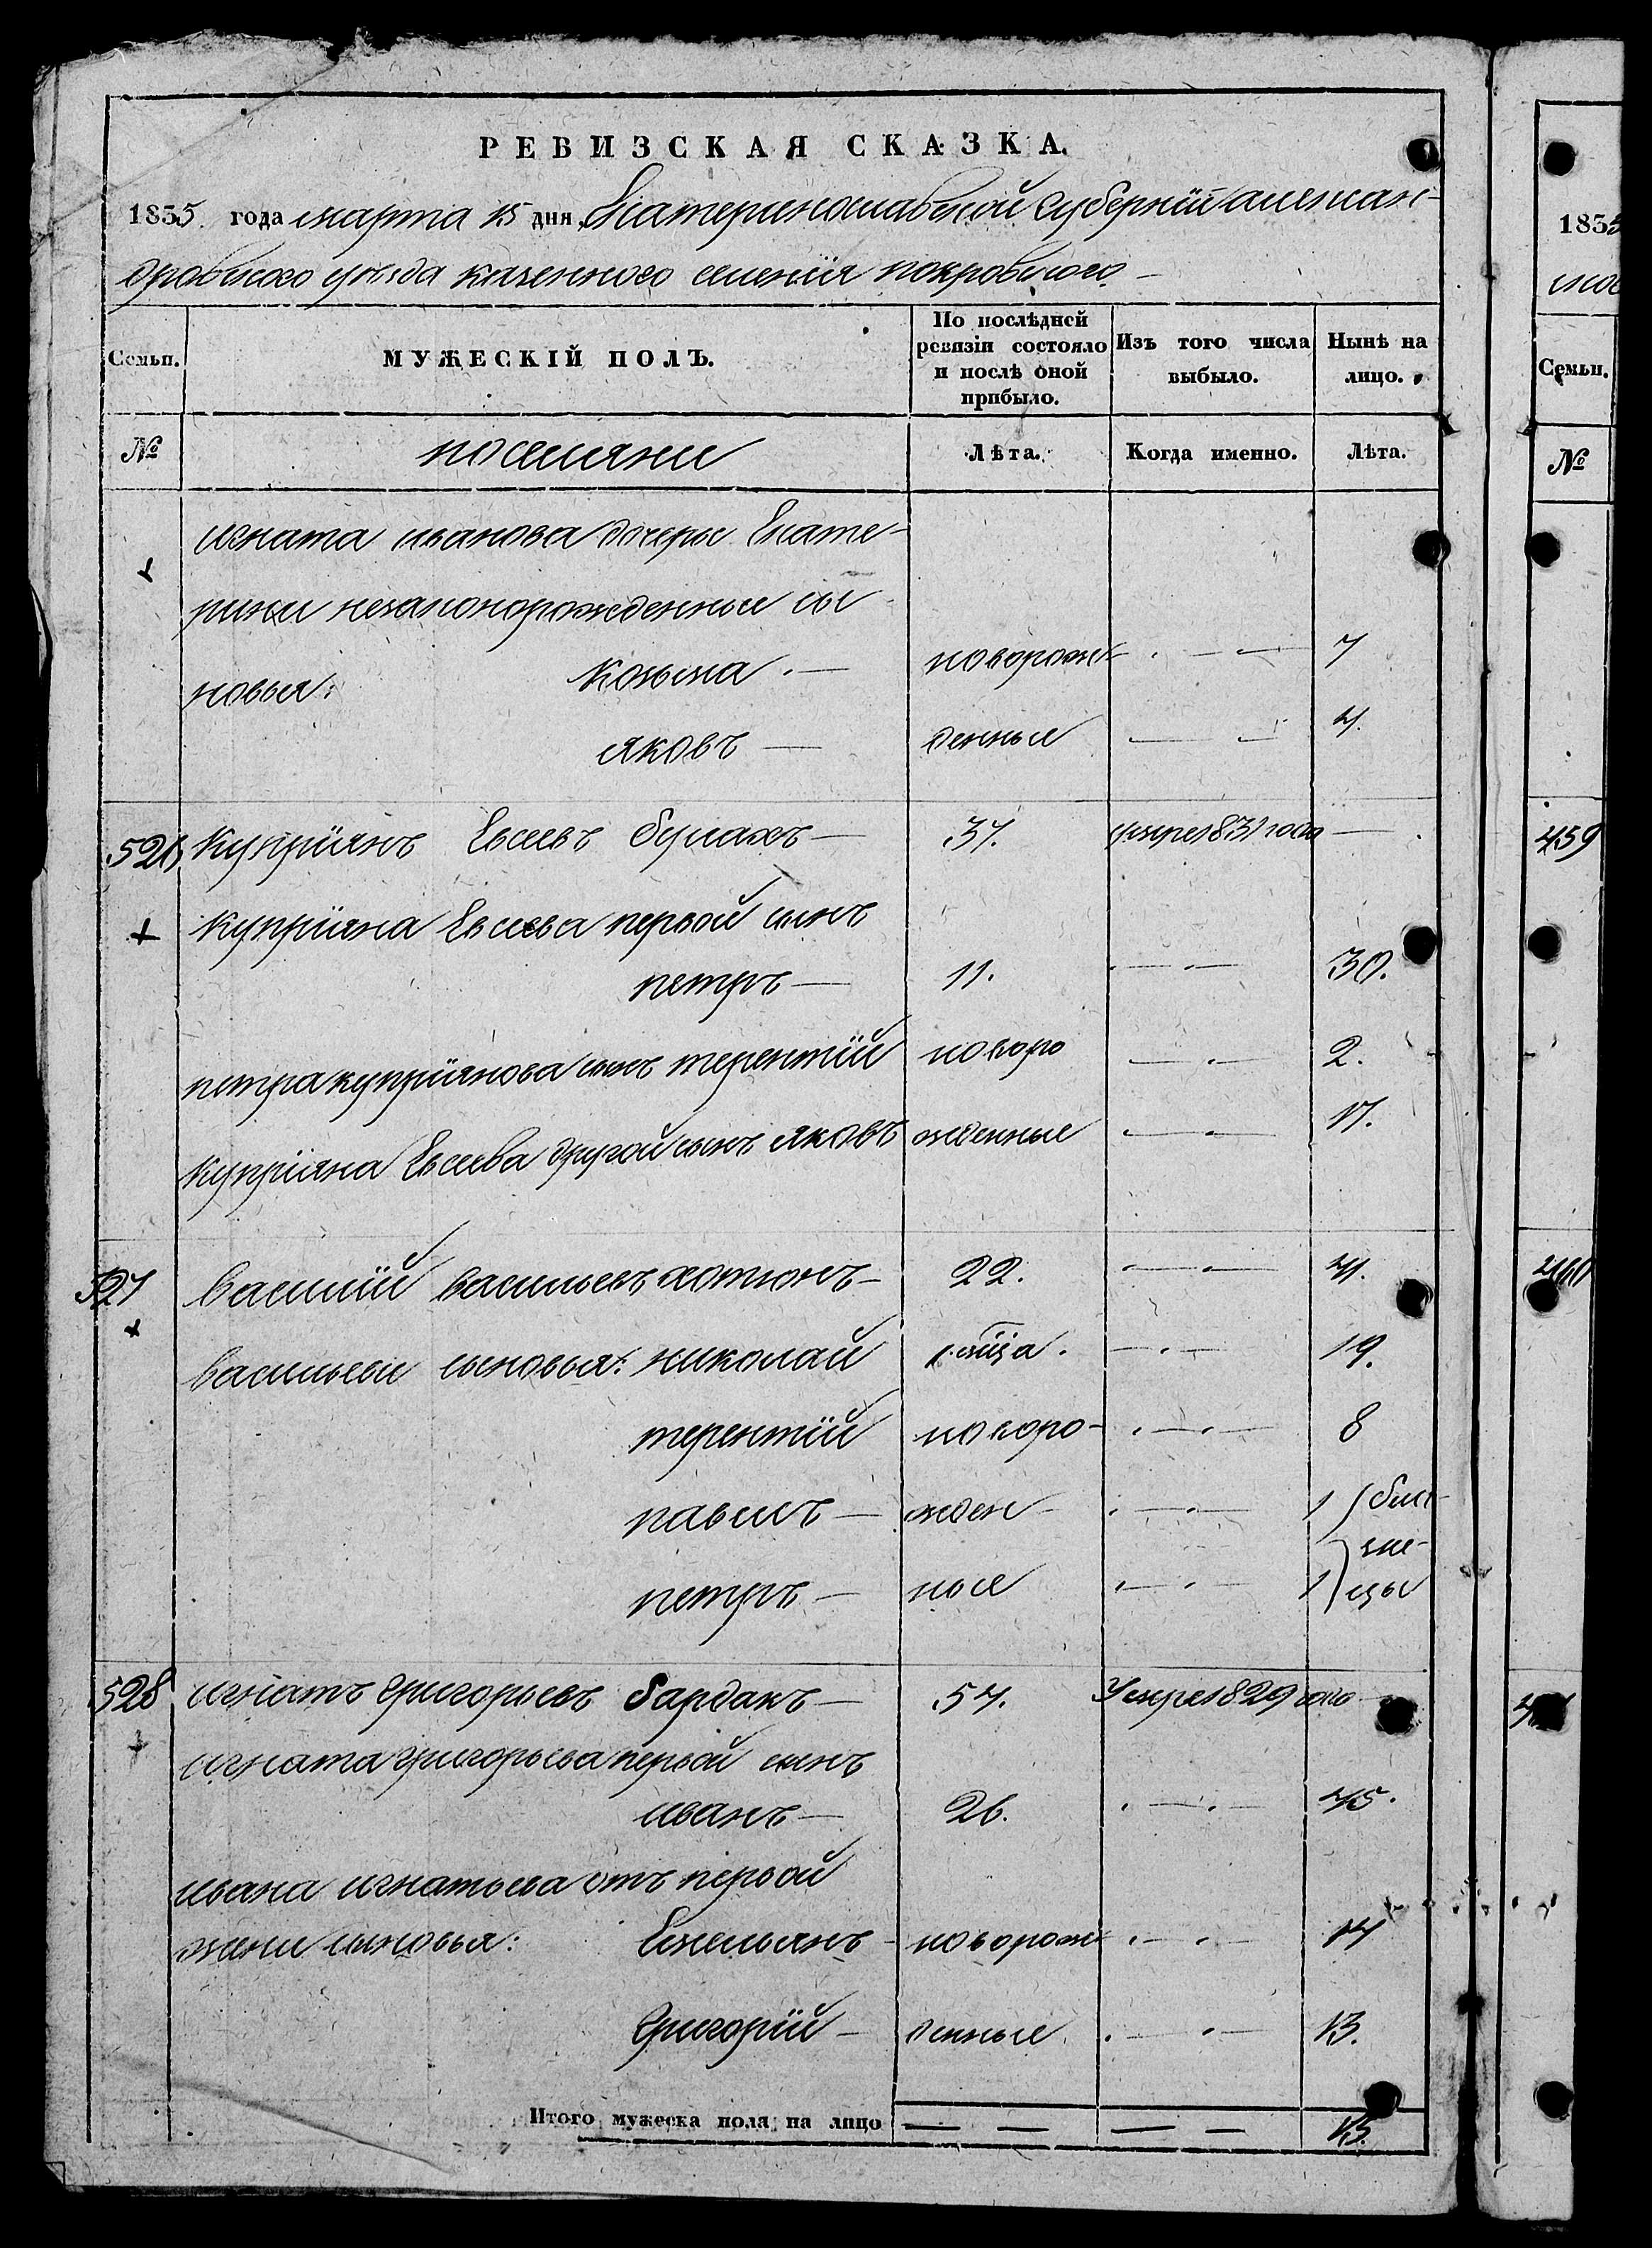 РЕВИЗСКАЯ СКАЗКА.
1835 года марта 15 дня, Екатеринославской Губернїи алексан-
дровского уезда казенного селенїя покровского.
Семьи. МУЖЕСКІЙ ПОЛЪ. По послѣдней ревизіи состояло и послѣ оной прибыло. Изъ того числа выбыло. Нынѣ на лицо.
№ поселяни Лѣта. Когда именно. Лѣта.
игната иванова дочери Екате-
рини незаконорожденные си
новья: Козьма новорож- 7
яковъ денные 4.
526 Куприянъ Евсеевъ булахъ 37. умре 1831 года
Куприяна Евсеева первой сынъ
петръ 11. 30.
петра куприянова сынъ терентїй новоро 2.
Куприяна Евсеева другой сынъ яковъ жденные 17.
527 Василїй васильевъ хотюнъ 22. 41.
Васильеви сыновья: николай 1. 19.
терентїй новоро- 8
павелъ жден 1 близ-
не-
петръ ные 1 цы
528 игнатъ Григорьевъ бардакъ 54. Умре 1829 года
игната григорьева первой сынъ
иванъ 26. 45.
ивана игнатьева отъ первой
жени сыновья: Емельянъ новорож 14
Григорїй денные 13.
Итого мужеска пола на лицо 13.
1835
Семьи.
№
459
460